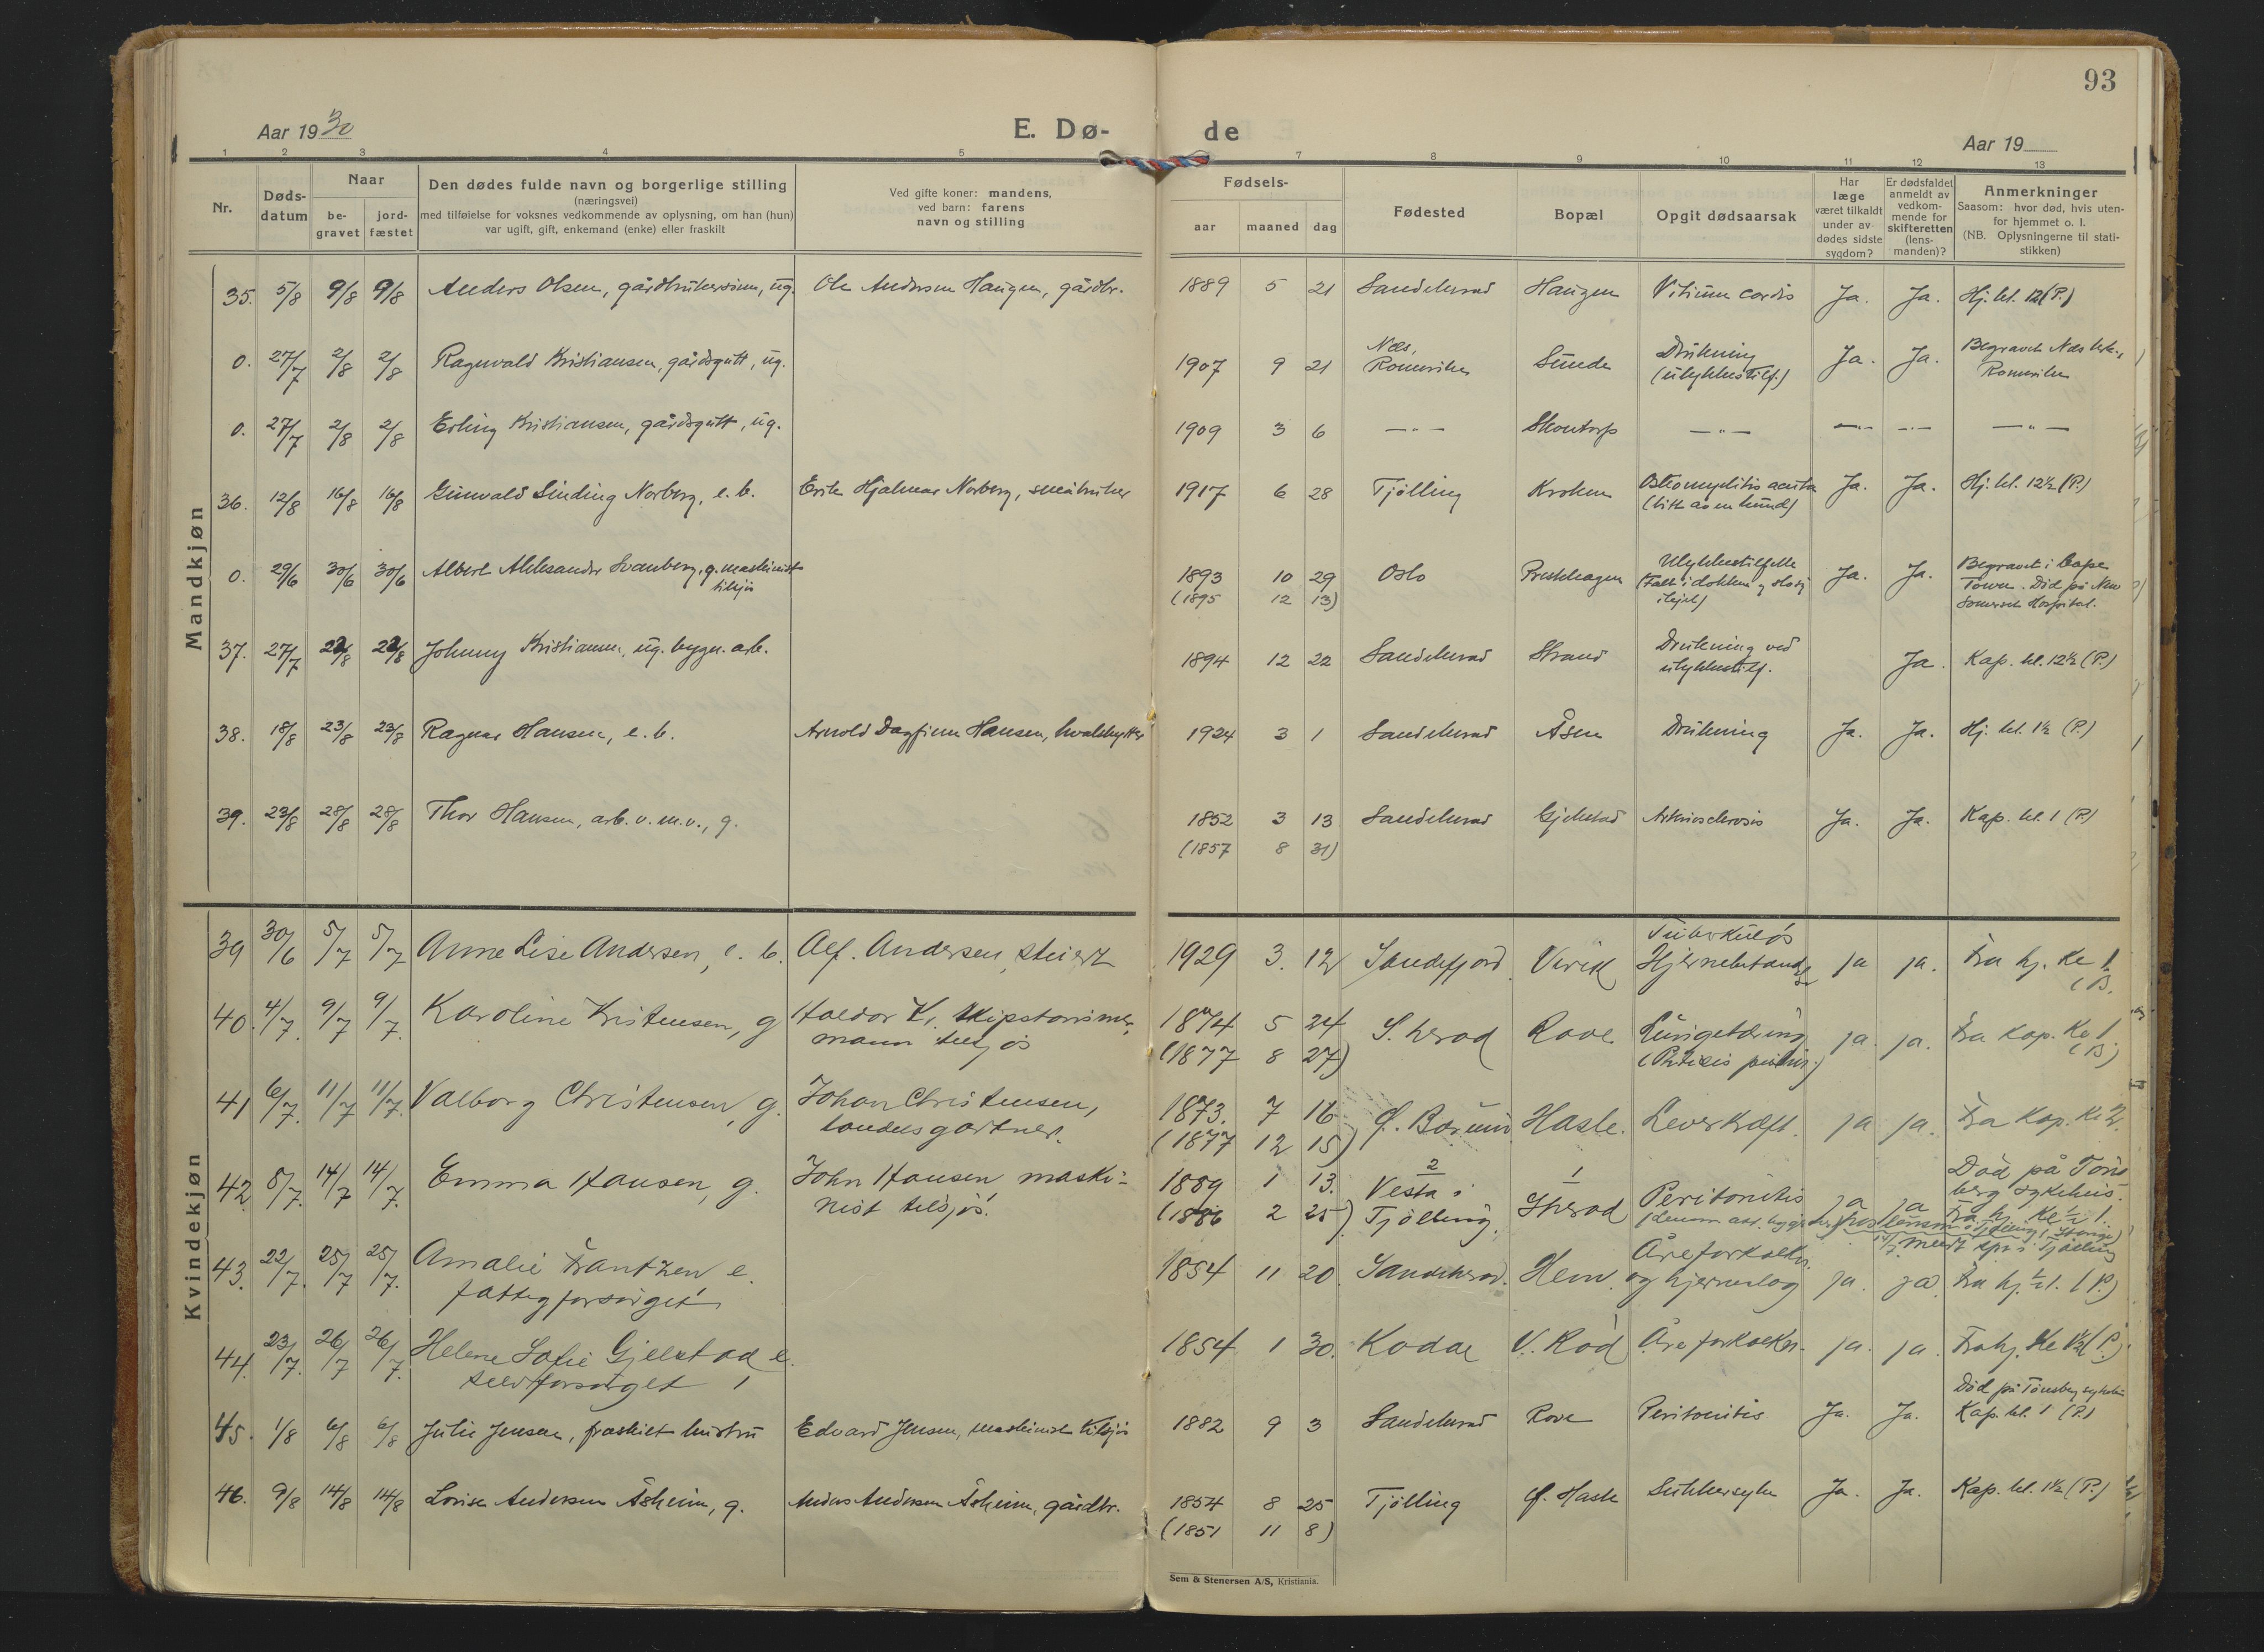 93
Aar 1930
E. Dø-
de
Aar 19
1 2 3 4 5 7 8 9 10 11 12 13
Nr.
Døds-
datum
Naar
be-
gravet
jord-
fæstet
Den dødes fulde navn og borgerlige stilling
(næringsvei)
med tilføielse for voksnes vedkommende av oplysning, om han (hun)
var ugift, gift, enkemand (enke) eller fraskilt
Ved gifte koner: mandens,
ved barn: farens
navn og stilling
Fødsels-
aar
maaned
dag
Fødested
Bopæl
Opgit dødsaarsak
Har
læge
været tilkaldt
under av-
dødes sidste
sygdom?
Er dødsfaldet
anmeldt av
vedkom-
mende for
skifteretten
(lens-
manden)?
Anmerkninger
Saasom: hvor død, hvis uten-
for hjemmet o. l.
(NB. Oplysningerne til stati-
stikken)
Mandkjøn
35. 5/8 9/8 9/8 Anders Olsen, gårdbrukersønn, ug. Ole Andersen Haugen, gårdbr. 1889 5 21 Sandeherad Haugen Vitium cordis Ja. Ja. Hj. kl. 12 (P.)
0. 27/7 2/8 2/8 Ragnvald Kristiansen, gårdsgutt, ug. 1907 9 21 Nes, Romerike Sunde Drukning Ja. Ja. Begravet Nes
(ulykkestilf.) Romerike
0. 27/7 2/8 2/8 Erling Kristiansen, gårdsgutt, ug. 1909 3 6 — " — Skontorp — " — — " — — " — — " —
36. 12/8 16/8 16/8 Gunvald Sinding Norberg, e. b. Erik Hjalmar Norberg, småbruker 1917 6 28 Tjølling Kroken Osteomyelitis acuta Ja. Ja. Hj. kl. 12½ (P.)
(bitt av en hund)
0. 29/6 30/6 30/6 Albert Aleksander Svanberg, g. maskinist 1893 10 29 Oslo Preståhagen Ulykkestilfelle Ja. Ja. Begravet i Cape
tilsjøs (1895 12 13) (Falt i dokken og slo sig Town. Død på New
ihjel) Somerset Hospital.
37. 27/7 22/8 22/8 Johnny Kristiansen, ug. bygn. arb. 1894 12 22 Sandeherad Strand Drukning ved Ja. Kap. kl. 12½ (P.)
ulykkestilf.
38. 18/8 23/8 23/8 Ragnar Hansen, e. b. Arnold Dagfinn Hansen, hvalskytter 1924 3 1 Sandeherad Åsen Drukning Ja. Ja. Hj. kl. 1½ (P.)
39. 23/8 28/8 28/8 Thor Hansen, arb. v. m. v., g. 1852 3 13 Sandeherad Gjekstad Arteriosclerosis Ja. Ja. Kap. kl. 1 (P.)
(1857 8 31)
Kvindekjøn
39 30/6 5/7 5/7 Anne Lise Andersen, e. b. Alf. Andersen, stuert 1929 3. 12 Sandefjord Virik Tuberkuløs ja ja. Fra hj. Kl 1.
Hjernebetændelse (B.
40. 4/7. 9/7 9/7. Karoline Kristensen, g Haldor Kr. skipstømmer- 1874 5 24 S. herad Rove Lungetæring ja. ja. Fra Kap. Kl 1.
mann tilsjøs (1877 8 27) (B)
41 6/7. 11/7 11/7. Valborg Christensen, g. Johan Christensen, 1873. 7 16 Ø. Bærum Hasle. Leverkræft. ja ja. Fra Kap. Kl 2.
landsgartner. (1877 12 15)
42. 8/7. 14/7 14/7. Emma Hansen, g. John Hansen, maski- 1889 1 13. Vesta i Sherad Peritonitis ja ja Død på Tøns
nist tilsjøs. (1886 2 25) Tjølling. berg sykehus.
Fra hj. Kl ½ 1.
43. 22/7. 25/7 25/7. Amalie Frantzen e. 1854 11 20. Sandeherad. Hem. Åreforkalkn. ja. ja. Fra hj. ½ 1. (P.)
fattigforsørget og hjerneslag
44. 23/7. 26/7 26/7. Helene Sofie Gjelstad e. 1854 1 30. Kodal V. Rød Åreforkalkn. ja. ja. Fra hj. Kl 1½ (P.)
selvforsørget
45. 1/8 6/8 6/8 Julie Jensen, fraskilt hustru Edvard Jensen, maskinist tilsjøs 1882 9 3 Sandeherad Rove Peritonitis Ja. Ja. Død på Tønsberg sykehus
Kap. kl. 1 (P.)
46. 9/8 14/8 14/8 Lovise Andersen Åsheim, g. Anders Andersen Åsheim, gårdbr. 1854 8 25 Tjølling Ø. Hasle Sukkersyke Ja. Ja. Kap. kl. 1½ (P.)
(1851 11 8)
Sem & Stenersen A/S, Kristiania.